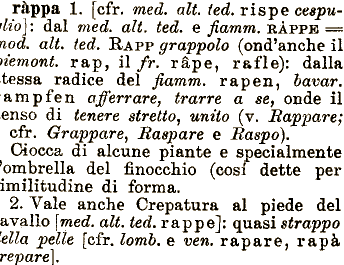 ràppa 1. [cfr. med. alt. ted. rispe cespu-
glio]: dal med. alt. ted. e fiamm. RÀPPE =
mod. alt. ted. RAPP grappolo (ond'anche il
piemont. rap, il fr. râpe, rafle): dalla
stessa radice del fiamm. rapen, bavar.
rampfen afferrare, trarre a se, onde il
senso di tenere stretto, unito (v. Rappare;
cfr. Grappare, Raspare e Raspo).
Ciocca di alcune piante e specialmente
l'ombrella del finocchio (così dette per
similitudine di forma.
2. Vale anche Crepatura al piede del
cavallo [med. alt. ted. rappe]: quasi strappo
della pelle [cfr. lomb. e ven. rapare, rapà
crepare].